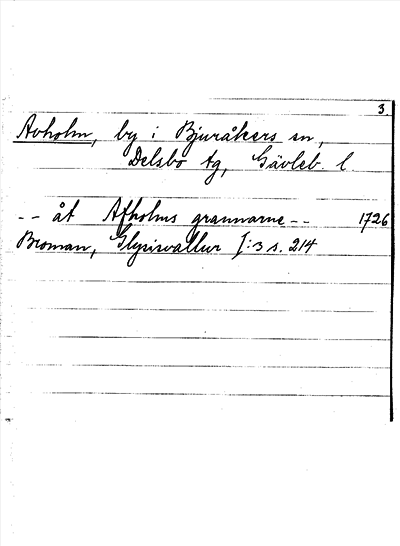 3.
Avholm, by i Bjuråkers sn,
Delsbo tg, Gävleb. l.
-- åt Afholms grannarne -- 1726
Broman, Glysisvallur I:3 s. 214